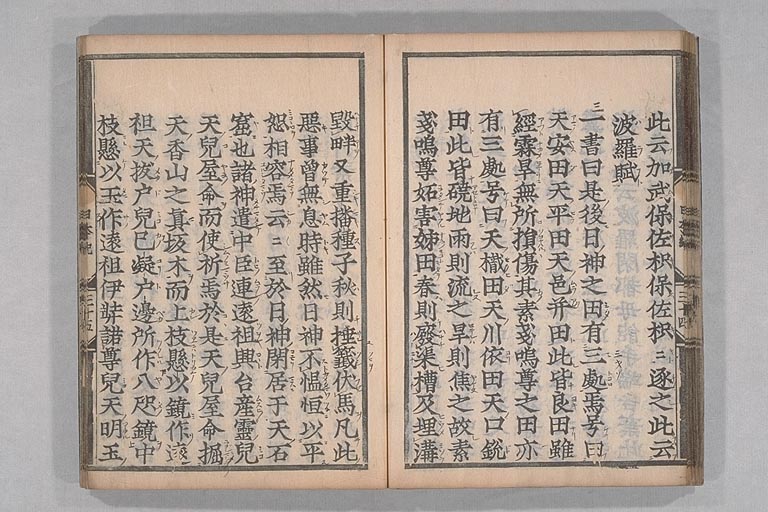 此云加武保佐枳保佐枳 逐之此云
波羅賦
一書曰是後日神之田有三處焉号曰
天安田天平田天邑并田此皆良田雖
經霖旱無所損傷其素戔嗚尊之田亦
有三處号曰天樴田天川依田天口銳
田此皆磽地雨則流之旱則焦之故素
戔嗚尊妬害姉田春則廢渠槽及埋溝
毀畔又重播種子秋則捶籤伏馬凡此
惡事曾無息時雖然日神不慍恒以平
恕相容焉云〻至於日神閇居于天石
窟也諸神遣中臣連遠祖興台產靈兒
天兒屋命而使祈焉於是天兒屋命掘
天香山之真坂木而上枝懸以鏡作遠
祖天拔戶兒己凝戶邊所作八咫鏡中
枝懸以玉作遠祖伊弉諾尊兒天明玉
日本紀 三十四
日本紀 三十五